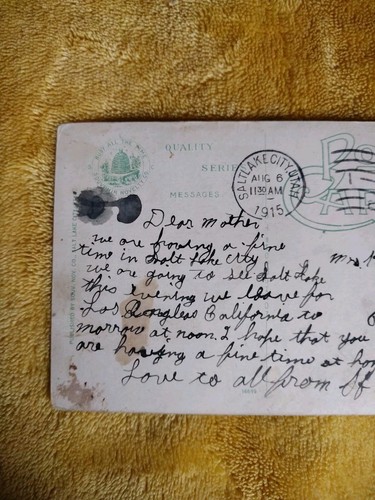 QUALITY
SERIES
MESSAGES
SALT LAKE CITY, UTAH
AUG 6
11 30 AM
1915
Dear Mother
we are haveing a fine
time in Salt Lake City
we are going to see Salt Lake
this evening we leave for
Los Angeles California to
morrow at noon. I hope that you
are haveing a fine time at hom
Love to all from
Mrs